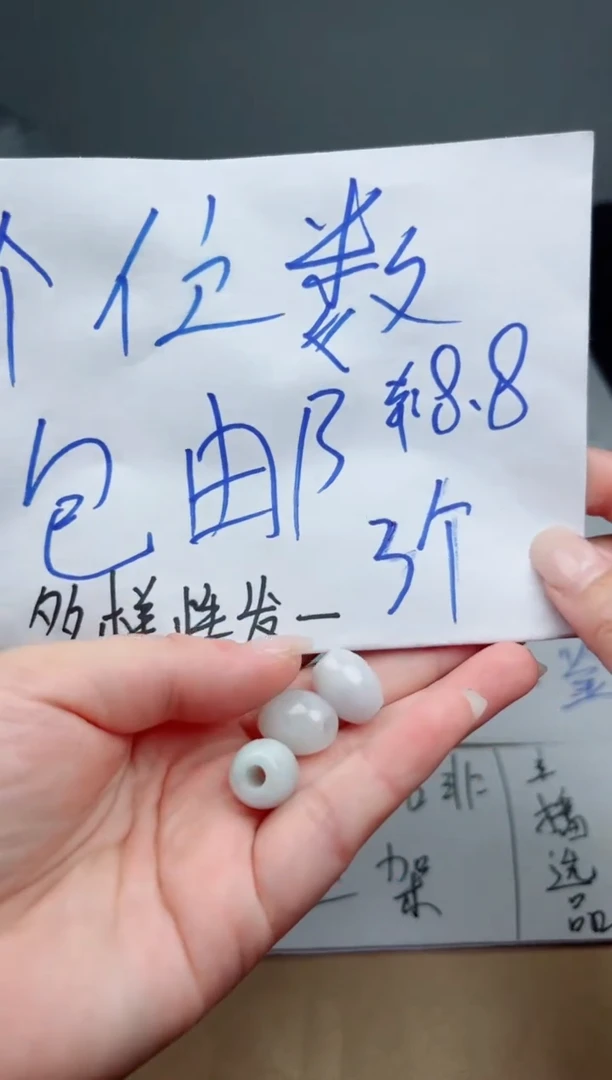 个位数
包邮 8.8
3个
多样性发一
非
架
主
播
选
品